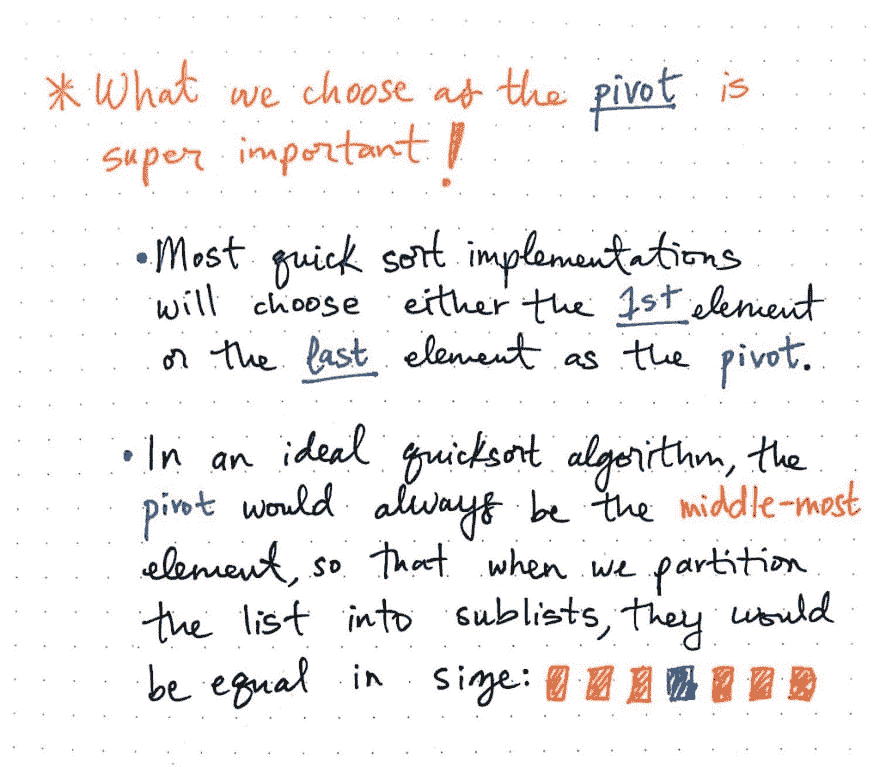 * What we choose as the pivot is
super important!
• Most quick sort implementations
will choose either the 1st element
or the last element as the pivot.
• In an ideal quicksort algorithm, the
pivot would always be the middle-most
element, so that when we partition
the list into sublists, they would
be equal in size: